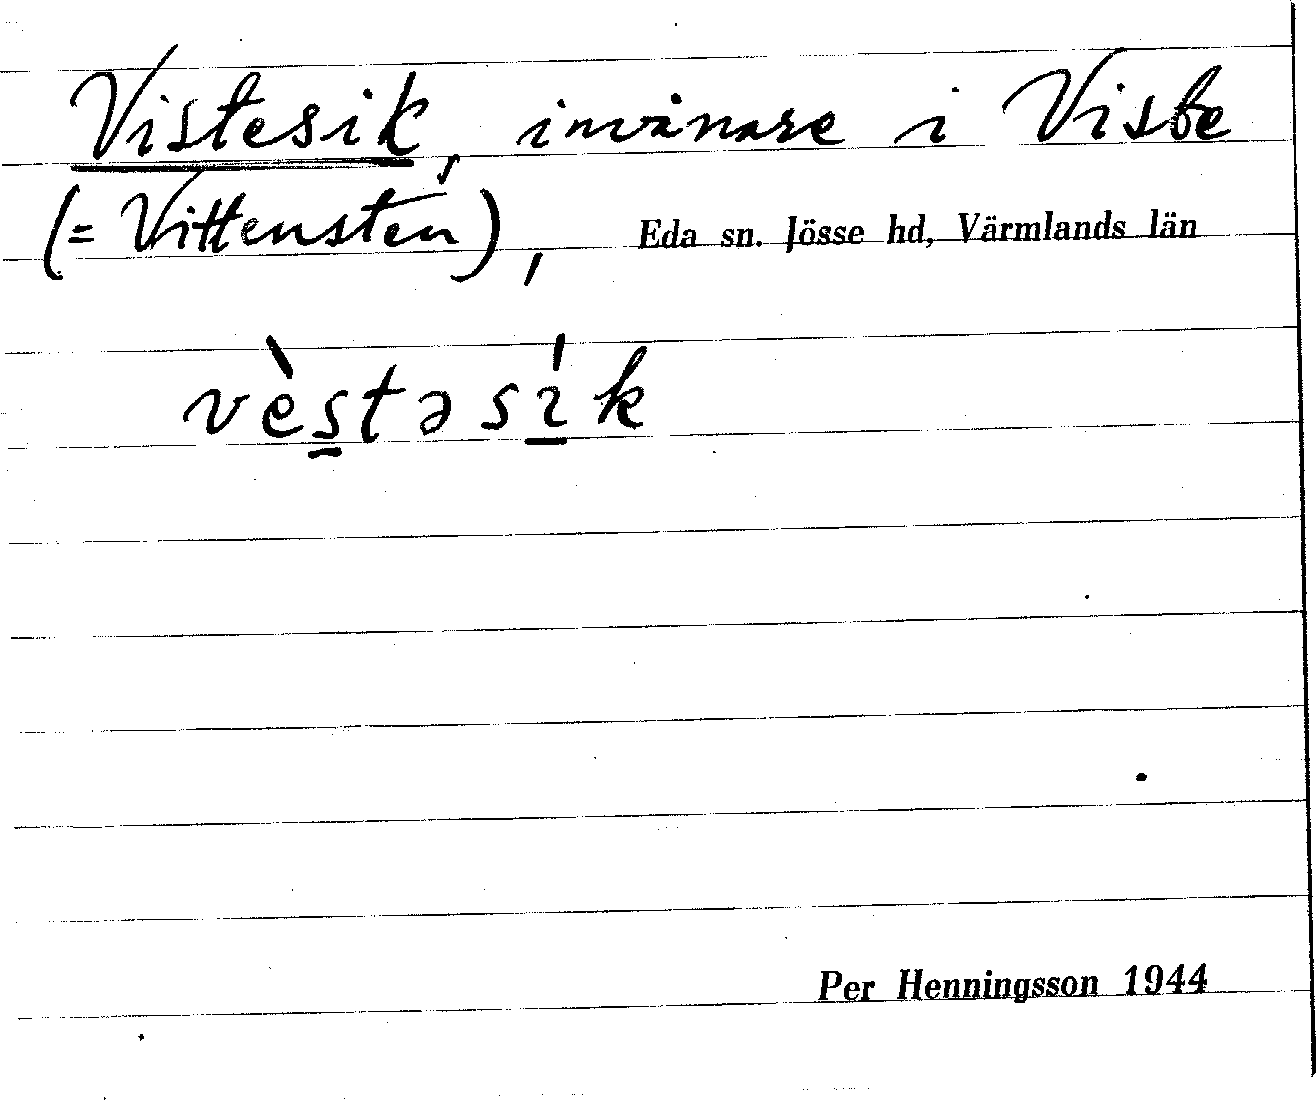 Vistesik, invånare i Viste
(= Vittensten), Eda sn. Jösse hd, Värmlands län
vès̠təsí̠k
Per Henningsson 1944